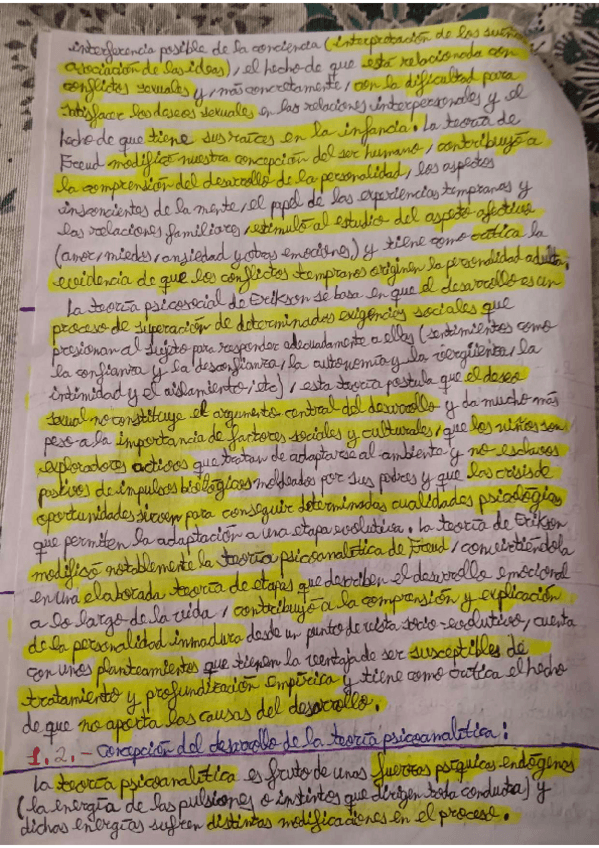 interferencia posible de la conciencia (interpretación de los sueños,
asociación de las ideas), el hecho de que esta relacionada con
conflictos sexuales y, más concretamente, con la dificultad para
satisfacer los deseos sexuales en las relaciones interpersonales y el
hecho de que tiene sus raíces en la infancia. La teoría de
Freud modificó nuestra concepción del ser humano, contribuyó a
la comprensión del desarrollo de la personalidad, los aspectos
inconcientes de la mente, el papel de las experiencias tempranas y
las relaciones familiares, estimuló al estudio del aspeto afectivo
(amor, miedos, ansiedad y otras emociones,) y tiene como crítica la
evidencia de que los conflictos tempranos originen la personalidad adulta.
La teoría psicosocial de Erikson se basa en que el desarrollo es un
proceso de superación de determinadas exigencias sociales que
presionan al sujeto para responder adecuadamente a ellas (sentimientos como
la confianza y la desconfianza, la autonomía y la vergüenza, la
intimidad y el aislamiento, etc), esta teoría postula que el deseo
sexual no constituye el argumento central del desarrollo y da mucho más
peso a la importancia de factores sociales y culturales, que los niños son
exploradores activos que tratan de adaptarse al ambiente y no esclavos
pasivos de impulsos biológicos moldeados por sus padres y que las crisis de
oportunidades sirven para conseguir determinadas cualidades psicológicas
que permiten la adaptación a una etapa evolutiva. La teoría de Erikson
modificó notablemente la teoría psicoanalítica de Freud, convirtiéndola
en una elaborada teoría de etapas que describen el desarrollo emocional
a lo largo de la vida, contribuyó a la comprensión y explicación
de la personalidad inmadura desde un punto de vista socio-evolutivo, cuenta
con unos planteamientos que tienen la ventaja de ser susceptibles de
tratamiento y profundización empírica y tiene como crítica el hecho
de que no aporta las causas del desarrollo.
1.2.- Concepción del desarrollo de la teoría psicoanalítica:
La teoría psicoanalítica es fruto de unas fuerzas psíquicas endógenas
(la energía de las pulsiones o instintos que dirigen toda conducta) y
dichas energías sufren distintas modificaciones en el proceso.